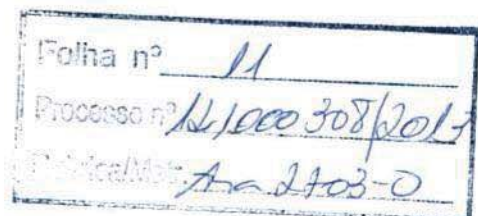 Folha nº 11
Processo nº 12/000 308/2017
Rubrica/Matr. Ana 2703-0